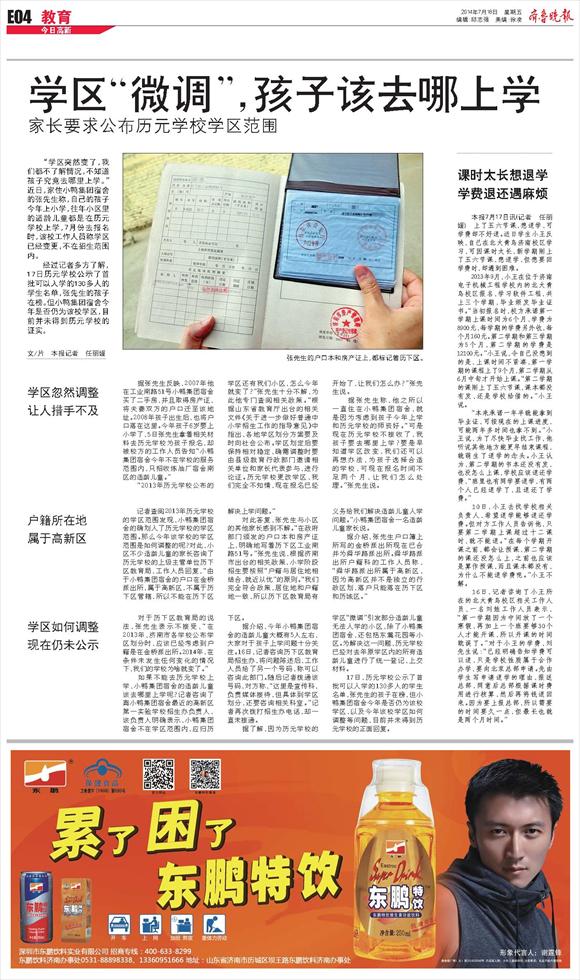 E04 教育
今日高新
2014年7月18日 星期五
编辑:邱志强 美编:徐凌
齐鲁晚报
学区“微调”,孩子该去哪上学
家长要求公布历元学校学区范围
“学区突然变了,我
们都不了解情况,不知道
孩子究竟去哪里上学。”
近日,家住小鸭集团宿舍
的张先生称,自己的孩子
今年上小学,往年小区里
的适龄儿童都是在历元
学校上学,7月份去报名
时,该校工作人员称学区
已经变更,不在招生范围
内。
经过记者多方了解,
17日历元学校公示了首
批可以入学的130多名的
学生名单,张先生的孩子
在榜。但小鸭集团宿舍今
年是否仍为该校学区,目
前并未得到历元学校的
证实。
文/片 本报记者 任丽媛
张先生的户口本和房产证上,都标记着历下区。
学区忽然调整
让人措手不及
据张先生反映,2007年他
在工业南路51号小鸭集团宿舍
买了二手房,并且取得房产证,
将夫妻双方的户口迁至该地
址。2008年孩子出生后,也将户
口落在这里。今年孩子6岁要上
小学了,5日张先生拿着相关材
料去历元学校为孩子报名,却
被校方的工作人员告知“小鸭
集团宿舍今年不在学校的服务
范围内,只招收炼油厂宿舍南
区的适龄儿童。”
“2013年历元学校公布的
学区还有我们小区,怎么今年
就变了?”张先生十分不解,为
此他专门查阅相关政策。“根
据山东省教育厅出台的相关
文件《关于进一步做好普通中
小学招生工作的指导意见》中
指出,各地学区划分方案要及
时向社会公布。学区划定后要
保持相对稳定,确需调整时要
由县级教育行政部门邀请相
关单位和家长代表参与,进行
论证。历元学校更改学区,我
们完全不知情,现在报名已经
开始了,让我们怎么办?”张先
生说。
据张先生称,他之所以
一直住在小鸭集团宿舍,就
是因为考虑到孩子今年上学
和历元学校的师资好。“可是
现在历元学校不接收了,我
孩子要去哪里上学?要是早
知道学区改变,我们还可以
再想办法,为孩子选择合适
的学校,可现在报名时间不
足两个月,让我们怎么处
理。”张先生说。
户籍所在地
属于高新区
记者查阅2013年历元学校
的学区范围发现,小鸭集团宿
舍的确划入了历元学校的学区
范围。那么今年该学校的学区
范围是如何调整的呢?对此,小
区不少适龄儿童的家长咨询了
历元学校的上级主管单位历下
区教育局。工作人员回复,“由
于小鸭集团宿舍的户口在金桥
派出所,属于高新区,不属于历
下区管辖,所以不能在历下区
解决上学问题。”
对此答复,张先生与小区
的其他家长感到不解。“在政府
部门颁发的户口本和房产证
上,明确地写着历下区工业南
路51号。”张先生说,根据济南
市出台的相关政策,小学阶段
招生要按照“户籍与居住地相
结合,就近从优”的原则。“我们
完全符合政策,居住地和户籍
地一致,所以历下区教育局有
义务给我们解决适龄儿童入学
问题。”小鸭集团宿舍一名适龄
儿童家长说。
据介绍,张先生户口簿上
所写的金桥派出所现在已合
并为舜华路派出所。舜华路派
出所户籍科的工作人员称,
“舜华路派出所属于高新区,
因为高新区并不是独立的行
政区划,落户只能落在历下区
和历城区。”
学区如何调整
现在仍未公示
对于历下区教育局的说
法,张先生表示不接受,“在
2013年,济南市各学校公布学
区划分时,应该已经考虑到户
籍是在金桥派出所。2014年,在
条件未发生任何变化的情况
下,我们的学校为啥就变了。”
如果不能去历元学校上
学,小鸭集团宿舍的适龄儿童
该去哪里上学呢?记者咨询了
离小鸭集团宿舍最近的高新区
第一实验学校招生办负责人,
该负责人明确表示,小鸭集团
宿舍不在学区范围内,应归历
下区。
据介绍,今年小鸭集团宿
舍的适龄儿童大概有5人左右,
大家对于孩子上学问题十分关
注。16日,记者咨询历下区教育
局招生办,将问题陈述后,工作
人员给了另一个号码,称可以
咨询此部门。随后记者拨通该
号码,对方称,“这里是宣传科,
负责媒体接待,但具体到学区
划分,还要咨询相关科室。”记
者再次拨打招生办电话,却一
直未接通。
据了解,因为历元学校的
学区“微调”引发部分适龄儿童
无法入学的小区,除了小鸭集
团宿舍,还包括东篱花园等小
区。为解决这一问题,历元学校
已经对去年原学区内的所有适
龄儿童进行了统一登记、上交
材料。
17日,历元学校公示了首
批可以入学的130多人的学生
名单,张先生的孩子在榜,但小
鸭集团宿舍今年是否仍为该校
学区,以及今年该校学区如何
调整等问题,目前并未得到历
元学校的正面回复。
课时太长想退学
学费退还遇麻烦
本报7月17日讯(记者 任丽
媛) 上了五六节课,想退学,可
学费却不好退。近日学生小王反
映,自己在北大青鸟济南校区学
习,可因课时太长,新学期刚上
了五六节课,想退学,但想要回
学费时,却遇到困难。
2013年9月,小王在位于济南
电子机械工程学校内的北大青
鸟校区报名,学习软件工程,共
上三个学期,毕业颁发毕业证
书。“当初报名时,校方承诺第一
学期上课时间为6个月,学费为
8900元,每学期的学费另外收,每
个月160元。第二学期和第三学期
为5个月,第二学期的学费是
12100元。”小王说,令自己没想到
的是,上课时间不紧凑,第一学
期的课程上了9个月,第二学期从
6月中旬才开始上课。“第二学期
的课刚上了五六节课,课本都没
有发,还是学校给借的。”小王
说。
“本来承诺一年半就能拿到
毕业证,可按现在的上课进度,
可能两年多时间也拿不到。”小
王说,为了尽快毕业找工作,他
听说其他地方能更早结束课程,
就萌生了退学的念头。小王认
为,第二学期的书本还没有发,
也没怎么上课,学校应该退还学
费,“班里也有同学要退学,有两
个人已经退学了,且退还了学
费。”
10日,小王去找学校相关
负责人,希望退学能够退还学
费。但对方工作人员告诉他,只
要第二学期上课超过十二课
时,就不能退。“在每个学期开
课之前,都会让预课,第二学期
的课还没怎么上,之前也应该
是算作预课,而且课本都没有,
为什么不能退学费呢。”小王不
解。
16日,记者咨询了小王所
在的北大青鸟校区相关工作人
员。一名刘姓工作人员表示,
深圳市东鹏饮料实业有限公司 招商专线:400-633-8299
东鹏饮料济南办事处0531-88898338、13360951666 地址:山东省济南市历城区坝王路东鹏饮料济南办事处
累了困了
东鹏特饮
东鹏
保健食品
开车
上网
加班 熬夜
重体力劳动
东鹏特饮
250ml
形象代言人:谢霆锋